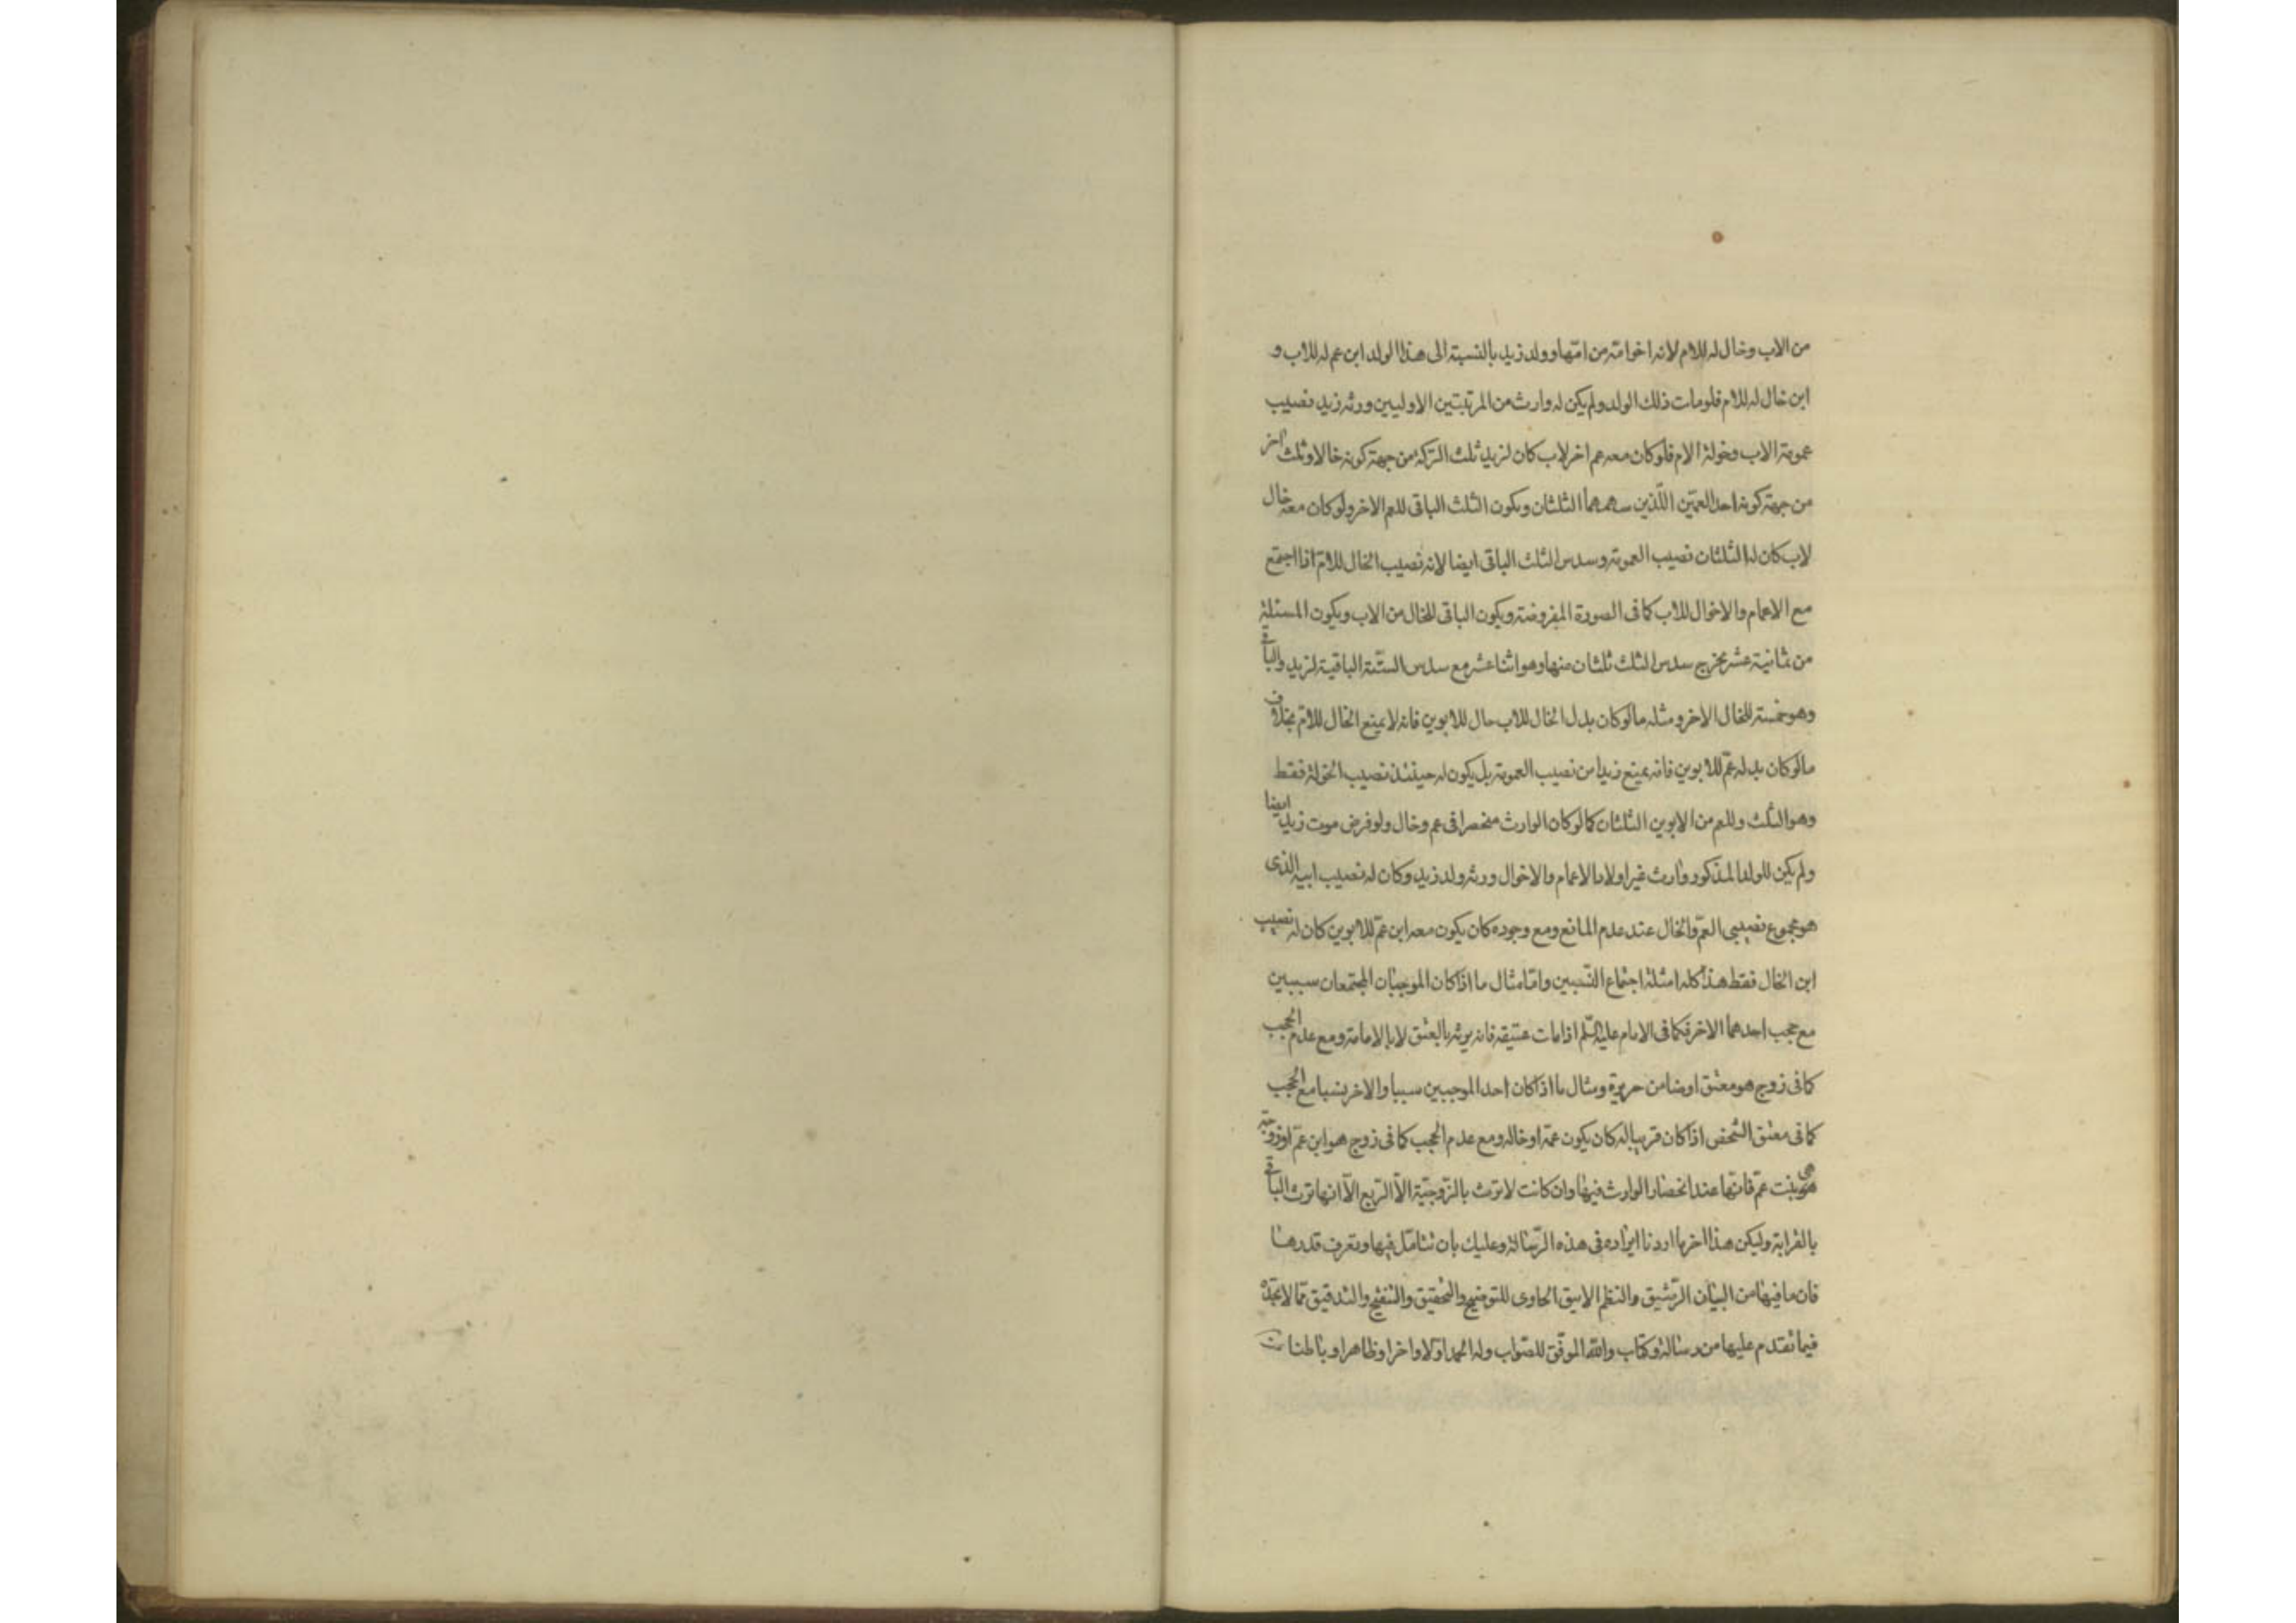 من الاب وخال له للام لانه اخو امه من امها وولد زيد بالنسبة الى هذا الولد ابن عم له للاب و
ابن خال له للام فلو مات ذلك الولد ولم يكن له وارث من المرتبتين الاوليين ورثه زيد نصيب
عمومة الاب وخولة الام فلو كان معه عم اخر لاب كان لزيد ثلث التركة من جهة كونه خالا وثلث اخر
من جهة كونه احد العمين اللذين سهمهما الثلثان ويكون الثلث الباقى للعم الاخر ولو كان معه خال
لاب كان له الثلثان نصيب العمومة وسدس الثلث الباقى ايضا لانه نصيب الخال للام اذا اجتمع
مع الاعمام والاخوال للاب كما فى الصورة المفروضة ويكون الباقى للخال من الاب ويكون المسئلة
من ثمانية عشر مخرج سدس الثلث ثلثان منها وهو اثنا عشر مع سدس الستة الباقية لزيد والباقى
وهو خمسة للخال الاخر ومثله ما لو كان بدل الخال للاب خال للابوين فانه لا يمنع الخال للام بخلاف
ما لو كان بدله عم للابوين فانه يمنع زيدا من نصيب العمومة بل يكون له حينئذ نصيب الخولة فقط
وهو الثلث وللعم من الابوين الثلثان كما لو كان الوارث منحصرا فى عم وخال ولو فرض موت زيد ايضا
ولم يكن للولد المذكور وارث غير اولاد الاعمام والاخوال ورثه ولد زيد وكان له نصيب ابيه الذى
هو مجموع نصيبى العم والخال عند عدم المانع ومع وجوده كان يكون معه ابن عم للابوين كان له نصيب
ابن الخال فقط هذا كله امثلة اجتماع النسبين واما مثال ما اذا كان الموجبان المجتمعان سببين
مع حجب احدهما الاخر فكما فى الامام عليه السلم اذا مات عتيقه فانه يرثه بالعتق لا بالامامة ومع عدم الحجب
كما فى زوج هو معتق او ضامن جريرة ومثال ما اذا كان احد الموجبين سببا والاخر نسبا مع الحجب
كما فى معتق الشخص اذا كان قريبا له كان يكون عمه او خاله ومع عدم الحجب كما فى زوج هو ابن عم او زوجة
هى بنت عم فانها عند انحصار الوارث فيها وان كانت لا ترث بالزوجية الا الربع الا انها ترث الباقى
بالقرابة وليكن هذا اخر ما اردنا ايراده فى هذه الرسالة وعليك بان تتامل فيها وتعرف قدرها
فان ما فيها من البيان الرشيق والنظم الانيق الحاوى للتوضيح والتحقيق والتنقيح والتدقيق مما لا تجده
فيما تقدم عليها من رسالة وكتاب والله الموفق للصواب وله الحمد اولا واخرا وظاهرا وباطنا